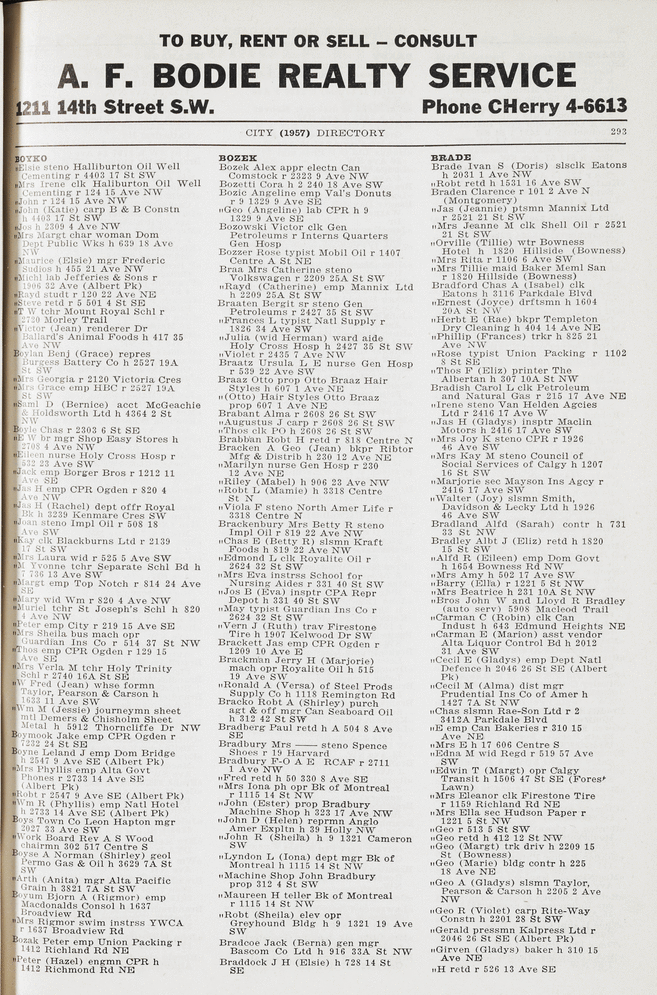 TO BUY, RENT OR SELL – CONSULT
A. F. BODIE REALTY SERVICE
1211 14th Street S.W. Phone CHerry 4-6613
CITY (1957) DIRECTORY 293
BOYKO
"Elsie steno Halliburton Oil Well
Cementing r 4403 17 St SW
"Mrs Irene clk Halliburton Oil Well
Cementing r 124 15 Ave NW
"John r 124 15 Ave NW
"John (Katie) carp B & B Constn
h 4403 17 St SW
"Jos h 2309 4 Ave NW
"Mrs Margt char woman Dom
Dept Public Wks h 639 18 Ave
NW
"Maurice (Elsie) mgr Frederic
Sudios h 455 21 Ave NW
"Michl lab Jefferies & Sons r
1906 32 Ave (Albert Pk)
"Rayd studt r 120 22 Ave NE
"Steve retd r 5 501 4 St SE
"T W tchr Mount Royal Schl r
2730 Morley Trail
"Victor (Jean) renderer Dr
Ballard's Animal Foods h 417 35
Ave NW
Boylan Benj (Grace) repres
Burgess Battery Co h 2527 19A
St SW
"Mrs Georgia r 2120 Victoria Cres
"Mrs Grace emp HBC r 2527 19A
St SW
"Saml D (Bernice) acct McGeachie
& Holdsworth Ltd h 4364 2 St
NW
Boyle Chas r 2303 6 St SE
"E W br mgr Shop Easy Stores h
2708 4 Ave NW
"Eileen nurse Holy Cross Hosp r
532 23 Ave SW
"Jack emp Borger Bros r 1212 11
Ave SE
"Jas H emp CPR Ogden r 820 4
Ave NW
"Jas H (Rachel) dept offr Royal
Bk h 3239 Kenmare Cres SW
"Joan steno Impl Oil r 508 18
Ave SW
"Kay clk Blackburns Ltd r 2139
17 St SW
"Mrs Laura wid r 525 5 Ave SW
"M Yvonne tchr Separate Schl Bd h
7 736 13 Ave SW
"Margt emp Top Notch r 814 24 Ave
SE
"Mary wid Wm r 820 4 Ave NW
"Muriel tchr St Joseph's Schl h 820
4 Ave NW
"Peter emp City r 219 15 Ave SE
"Mrs Sheila bus mach opr
Guardian Ins Co r 514 37 St NW
"Thos emp CPR Ogden r 129 15
Ave SE
"Mrs Verla M tchr Holy Trinity
Schl r 2740 16A St SE
"W Fred (Jean) whse formn
Taylor, Pearson & Carson h
1633 11 Ave SW
"Wm M (Jessie) journeymn sheet
mtl Demers & Chisholm Sheet
Metal h 5912 Thorncliffe Dr NW
Boymook Jake emp CPR Ogden r
7232 24 St SE
Boyne Leland J emp Dom Bridge
h 2547 9 Ave SE (Albert Pk)
"Mrs Phyllis emp Alta Govt
Phones r 2733 14 Ave SE
(Albert Pk)
"Robt r 2547 9 Ave SE (Albert Pk)
"Wm R (Phyllis) emp Natl Hotel
h 2733 14 Ave SE (Albert Pk)
Boys Town Co Leon Hapton mgr
2027 33 Ave SW
"Work Board Rev A S Wood
chairmn 302 517 Centre S
Boyse A Norman (Shirley) geol
Permo Gas & Oil h 3629 7A St
SW
"Arth (Anita) mgr Alta Pacific
Grain h 3821 7A St SW
Boyum Bjorn A (Rigmor) emp
Macdonalds Consol h 1637
Broadview Rd
"Mrs Rigmor swim instrss YWCA
r 1637 Broadview Rd
Bozak Peter emp Union Packing r
1412 Richland Rd NE
"Peter (Hazel) engmn CPR h
1412 Richmond Rd NE
BOZEK
Bozek Alex appr electn Can
Comstock r 2323 9 Ave NW
Bozetti Cora h 2 240 18 Ave SW
Bozic Angeline emp Val's Donuts
r 9 1329 9 Ave SE
"Geo (Angeline) lab CPR h 9
1329 9 Ave SE
Bozowski Victor clk Gen
Petroleums r Interns Quarters
Gen Hosp
Bozzer Rose typist Mobil Oil r 1407
Centre A St NE
Braa Mrs Catherine steno
Volkswagen r 2209 25A St SW
"Rayd (Catherine) emp Mannix Ltd
h 2209 25A St SW
Braaten Bergit sr steno Gen
Petroleums r 2427 35 St SW
"Frances L typist Natl Supply r
1826 34 Ave SW
"Julia (wid Herman) ward aide
Holy Cross Hosp h 2427 35 St SW
"Violet r 2435 7 Ave NW
Braatz Ursula L E nurse Gen Hosp
r 539 22 Ave SW
Braaz Otto prop Otto Braaz Hair
Styles h 607 1 Ave NE
"(Otto) Hair Styles Otto Braaz
prop 607 1 Ave NE
Brabant Alma r 2608 26 St SW
"Augustus J carp r 2608 26 St SW
"Thos clk PO h 2608 26 St SW
Brabban Robt H retd r 818 Centre N
Bracken A Geo (Jean) bkpr Ribtor
Mfg & Distrib h 230 12 Ave NE
"Marilyn nurse Gen Hosp r 230
12 Ave NE
"Riley (Mabel) h 906 23 Ave NW
"Robt L (Mamie) h 3318 Centre
St N
"Viola F steno North Amer Life r
3318 Centre N
Brackenbury Mrs Betty R steno
Impl Oil r 819 22 Ave NW
"Chas E (Betty R) slsmn Kraft
Foods h 819 22 Ave NW
"Edmond L clk Royalite Oil r
2624 32 St SW
"Mrs Eva instrss School for
Nursing Aides r 331 40 St SW
"Jos B (Eva) insptr CPA Repr
Depot h 331 40 St SW
"May typist Guardian Ins Co r
2624 32 St SW
"Vern J (Ruth) trav Firestone
Tire h 1907 Kelwood Dr SW
Brackett Jas emp CPR Ogden r
1209 10 Ave E
Brackman Jerry H (Marjorie)
mach opr Royalite Oil h 515
19 Ave SW
"Ronald A (Versa) of Steel Prods
Supply Co h 1118 Remington Rd
Bracko Robt A (Shirley) purch
agt & off mgr Can Seaboard Oil
h 312 42 St SW
Bradberg Paul retd h A 504 8 Ave
SE
Bradbury Mrs —— steno Spence
Shoes r 19 Harvard
Bradbury F-O A E RCAF r 2711
1 Ave NW
"Fred retd h 50 330 8 Ave SE
"Mrs Iona ph opr Bk of Montreal
r 1115 14 St NW
"John (Ester) prop Bradbury
Machine Shop h 323 17 Ave NW
"John D (Helen) reprmn Anglo
Amer Expltn h 39 Holly NW
"John R (Sheila) h 9 1321 Cameron
SW
"Lyndon L (Iona) dept mgr Bk of
Montreal h 1115 14 St NW
"Machine Shop John Bradbury
prop 312 4 St SW
"Maureen H teller Bk of Montreal
r 1115 14 St NW
"Robt (Sheila) elev opr
Greyhound Bldg h 9 1321 19 Ave
SW
Bradcoe Jack (Berna) gen mgr
Bascom Co Ltd h 916 33A St NW
Braddock J H (Elsie) h 728 14 St
SE
BRADE
Brade Ivan S (Doris) slsclk Eatons
h 2031 1 Ave NW
"Robt retd h 1531 16 Ave SW
Braden Clarence r 101 2 Ave N
(Montgomery)
"Jas (Jeannie) ptsmn Mannix Ltd
r 2521 21 St SW
"Mrs Jeanne M clk Shell Oil r 2521
21 St SW
"Orville (Tillie) wtr Bowness
Hotel h 1820 Hillside (Bowness)
"Mrs Rita r 1106 6 Ave SW
"Mrs Tillie maid Baker Meml San
r 1820 Hillside (Bowness)
Bradford Chas A (Isabel) clk
Eatons h 3116 Parkdale Blvd
"Ernest (Joyce) drftsmn h 1604
20A St NW
"Herbt E (Rae) bkpr Templeton
Dry Cleaning h 404 14 Ave NE
"Phillip (Frances) trkr h 825 21
Ave NW
"Rose typist Union Packing r 1102
8 St SE
"Thos F (Eliz) printer The
Albertan h 307 10A St NW
Bradish Carol L clk Petroleum
and Natural Gas r 215 17 Ave NE
"Irene steno Van Helden Agcies
Ltd r 2416 17 Ave W
"Jas H (Gladys) insptr Maclin
Motors h 2416 17 Ave SW
"Mrs Joy K steno CPR r 1926
46 Ave SW
"Mrs Kay M steno Council of
Social Services of Calgy h 1207
16 St SW
"Marjorie sec Mayson Ins Agcy r
2416 17 Ave SW
"Walter (Joy) slsmn Smith,
Davidson & Lecky Ltd h 1926
46 Ave SW
Bradland Alfd (Sarah) contr h 731
33 St NW
Bradley Albt J (Eliz) retd h 1820
15 St SW
"Alfd R (Eileen) emp Dom Govt
h 1654 Bowness Rd NW
"Mrs Amy h 502 17 Ave SW
"Barry (Ella) r 1221 5 St NW
"Mrs Beatrice h 231 10A St NW
"Bros John W and Lloyd R Bradley
(auto serv) 5908 Macleod Trail
"Carman C (Robin) clk Can
Indust h 643 Edmund Heights NE
"Carman E (Marion) asst vendor
Alta Liquor Control Bd h 2012
31 Ave SW
"Cecil E (Gladys) emp Dept Natl
Defence h 2046 26 St SE (Albert
Pk)
"Cecil M (Alma) dist mgr
Prudential Ins Co of Amer h
1427 7A St NW
"Chas slsmn Rae-Son Ltd r 2
3412A Parkdale Blvd
"E emp Can Bakeries r 310 15
Ave NE
"Mrs E h 17 606 Centre S
"Edna M wid Regd r 519 57 Ave
SW
"Edwin T (Margt) opr Calgy
Transit h 1506 47 St SE (Forest
Lawn)
"Mrs Eleanor clk Firestone Tire
r 1159 Richland Rd NE
"Mrs Ella sec Hudson Paper r
1221 5 St NW
"Geo r 513 5 St SW
"Geo retd h 412 12 St NW
"Geo (Margt) trk driv h 2209 15
St (Bowness)
"Geo (Marie) bldg contr h 225
18 Ave NE
"Geo A (Gladys) slsmn Taylor,
Pearson & Carson h 2205 2 Ave
NW
"Geo R (Violet) carp Rite-Way
Constn h 2201 28 St SW
"Gerald pressmn Kalpress Ltd r
2046 26 St SE (Albert Pk)
"Girven (Gladys) baker h 310 15
Ave NE
"H retd r 526 13 Ave SE